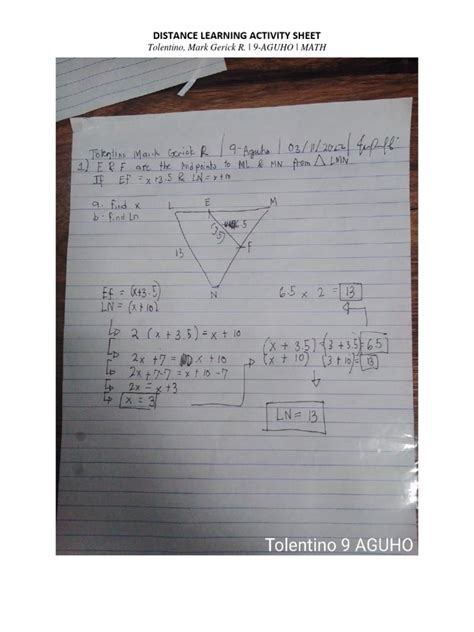 DISTANCE LEARNING ACTIVITY SHEET
Tolentino, Mark Gerick R. | 9-AGUHO | MATH
Tolentino Mark Gerick R | 9-Aguho | 03/11/2022 |
1) E & F are the midpoints to ML & MN from △LMN.
If EF = x+3.5 & LN = x+10
a. find x
b. find Ln
L E M
5
(3.5)
F
13
N
Ef = (x+3.5)
LN = (x+10)
6.5 x 2 = 13
2 (x + 3.5) = x + 10
2x + 7 = x + 10
2x + 7-7 = x + 10 -7
2x = x + 3
x = 3
(x + 3.5) (3 + 3.5) = 6.5
(x + 10) (3 + 10) = 13
LN = 13
Tolentino 9 AGUHO